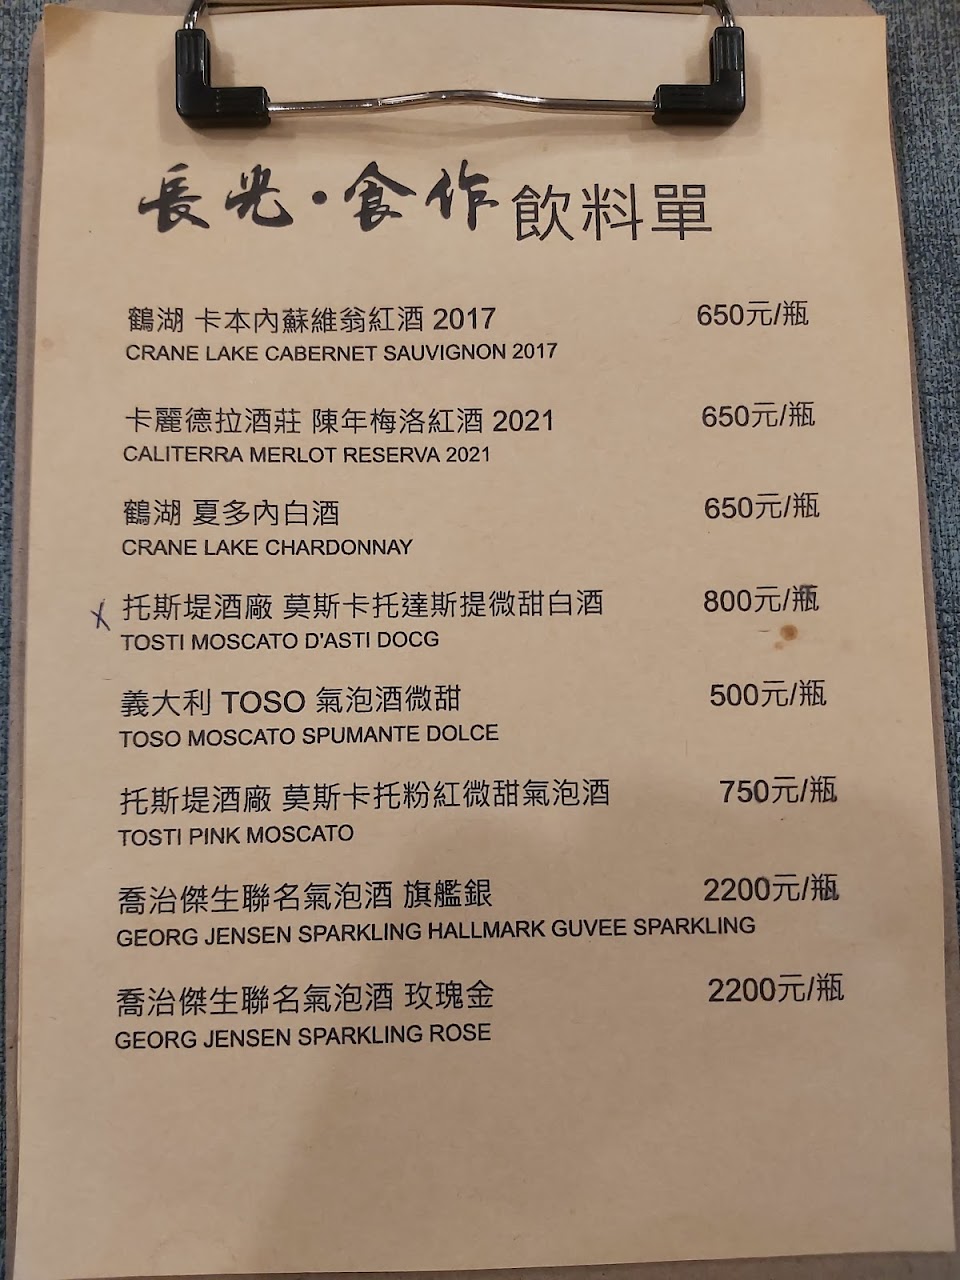 長光·食作 飲料單
鶴湖 卡本內蘇維翁紅酒 2017 650元/瓶
CRANE LAKE CABERNET SAUVIGNON 2017
卡麗德拉酒莊 陳年梅洛紅酒 2021 650元/瓶
CALITERRA MERLOT RESERVA 2021
鶴湖 夏多內白酒 650元/瓶
CRANE LAKE CHARDONNAY
X 托斯堤酒廠 莫斯卡托達斯提微甜白酒 800元/瓶
TOSTI MOSCATO D'ASTI DOCG
義大利 TOSO 氣泡酒微甜 500元/瓶
TOSO MOSCATO SPUMANTE DOLCE
托斯堤酒廠 莫斯卡托粉紅微甜氣泡酒 750元/瓶
TOSTI PINK MOSCATO
喬治傑生聯名氣泡酒 旗艦銀 2200元/瓶
GEORG JENSEN SPARKLING HALLMARK GUVEE SPARKLING
喬治傑生聯名氣泡酒 玫瑰金 2200元/瓶
GEORG JENSEN SPARKLING ROSE